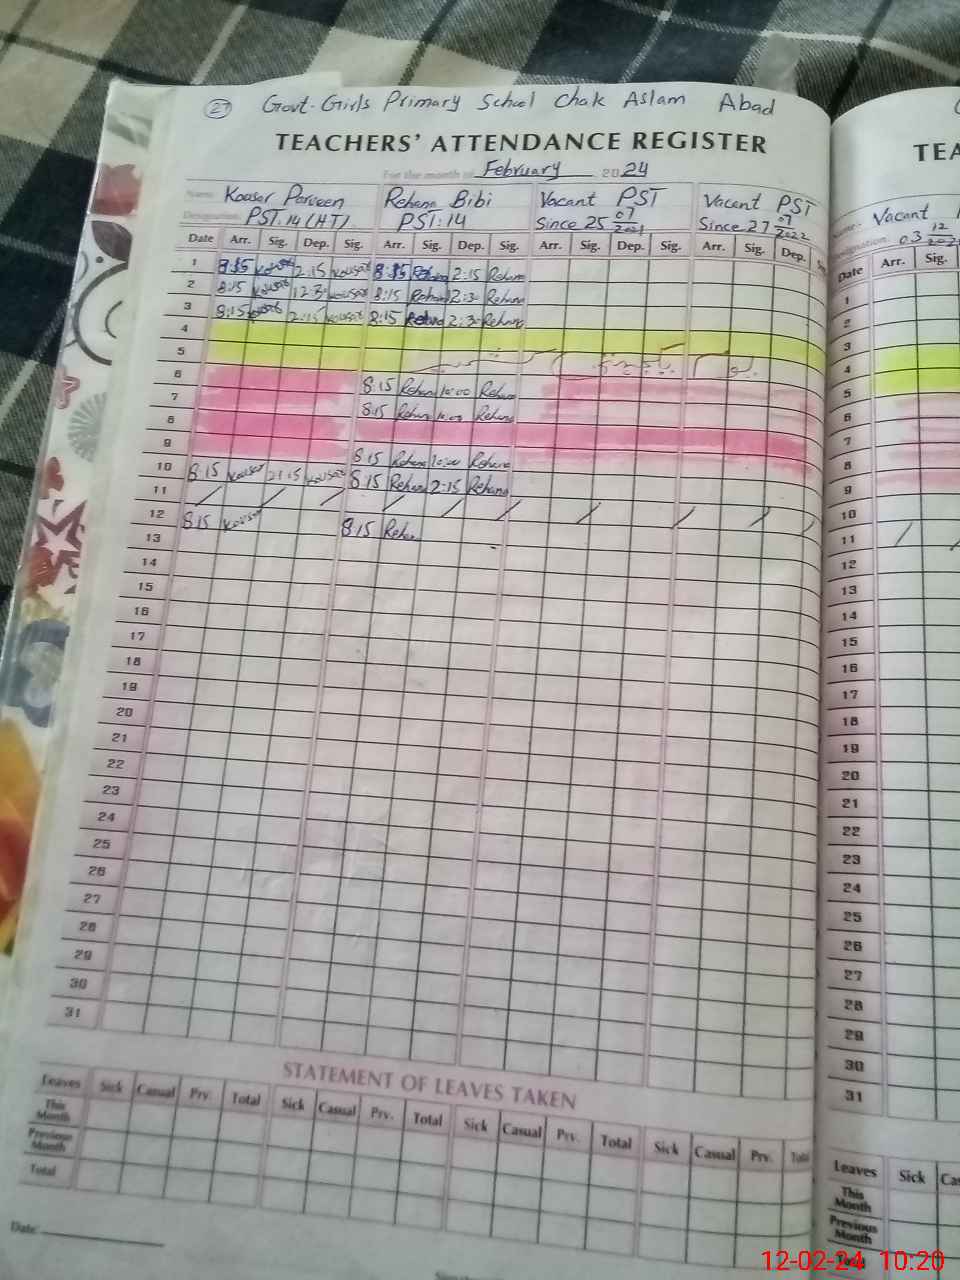 27 Govt. Girls Primary School Chak Aslam Abad
TEACHERS' ATTENDANCE REGISTER
TEA
For the month of February 2024
Name: Kousar Parveen Rehana Bibi Vacant PST Vacant PST
Designation: PST.14 (HT). PST:14 Since 25 07 2021 Since 27 07 2022
Name: Vacant
Designation: 03 12
Date Arr. Sig. Dep. Sig. Arr. Sig. Dep. Sig. Arr. Sig. Dep. Sig. Arr. Sig. Dep.
Date Arr. Sig.
1 8:15 Kousar 2:15 Kousar 8:15 Rehana 2:15 Rehana
2 8:15 Kousar 12:30 Kousar 8:15 Rehana 2:30 Rehana
3 8:15 Kousar 2:15 Kousar 8:15 Rehana 2:30 Rehana
4
5 یوم
6 8:15 Rehana 10:00 Rehana
7 8:15 Rehana 10:00 Rehana
8
9 8:15 Rehana 10:00 Rehana
10 8:15 Kousar 2:15 Kousar 8:15 Rehana 2:15 Rehana
11
12 8:15 Kousar 8:15 Rehan
13
14
15
16
17
18
19
20
21
22
23
24
25
26
27
28
29
30
31
1
2
3
4
5
6
7
8
9
10
11
12
13
14
15
16
17
18
19
20
21
22
23
24
25
26
27
28
29
30
31
STATEMENT OF LEAVES TAKEN
Leaves Sick Casual Prv. Total Sick Casual Prv. Total Sick Casual Prv. Total Sick Casual Prv. Total
This Month
Previous Month
Total
Leaves Sick
This Month
Previous Month
Total
Date
12-02-24 10:20